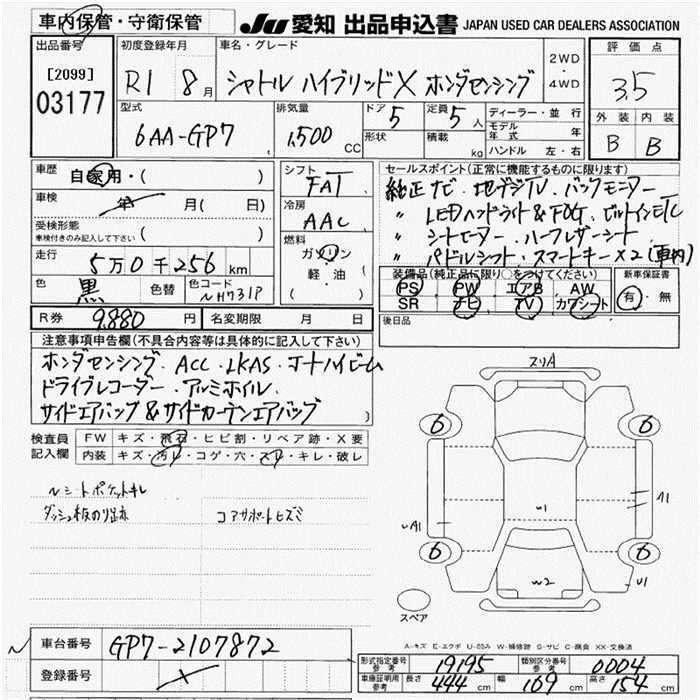 車内保管・守衛保管
JU 愛知 出品申込書 JAPAN USED CAR DEALERS ASSOCIATION
出品番号
[2099]
03177
初度登録年月
R1 8月
車名・グレード
シャトル ハイブリッドX ホンダセンシング
2WD
・
4WD
評価点
3.5
外装 内装
B B
型式
6AA-GP7
排気量
1,500 CC
ドア 5
定員 5 人
形状
積載 kg
ディーラー・並行
モデル年式 年
ハンドル 左・右
車歴
自家用・( )
車検
年 月( 日)
受検形態
車検付きのみ記入して下さい ( )
走行
5万0千256km
色
黒
色替
カラーNo.
NH731P
シフト
FAT
冷房
AAC
燃料
ガソリン
軽油
( )
セールスポイント(正常に機能するものに限ります)
純正ナビ・地デジTV・バックモニター
〃 LEDヘッドライト&FOG・ビルトインETC
〃 シートヒーター・ハーフレザーシート
〃 パドルシフト・スマートキー×2(車内)
装備品(純正品に限り○をつけてください)
PS PW エアB AW
SR ナビ TV カワシート
新車保証書
有・無
R券 9,880円 名変期限 月 日
後日品
注意事項申告欄(不具合内容等は具体的に記入して下さい)
ホンダセンシング・ACC・LKAS・オートハイビーム
ドライブレコーダー・アルミホイル・
サイドエアバッグ&サイドカーテンエアバッグ )
検査員記入欄
FW キズ・飛石・ヒビ割・リペア跡・X要
内装 キズ・汚レ・コゲ・穴・スレ・キレ・破レ
シートポケットキレ
ダッシュ板のり跡
コアサポートヒズミ
スリA
6 6
A1
U1
A1
6 6
W2 U1
スペア
A-キズ E-エクボ U-凹み W-補修跡 S-サビ C-腐食 XX-交換済
車台番号 GP7-2107872
登録番号
形式指定番号 参考 19195 類別区分番号 参考 0004
車庫証明用 参考 長さ 444 cm 幅 169 cm 高さ 154 cm